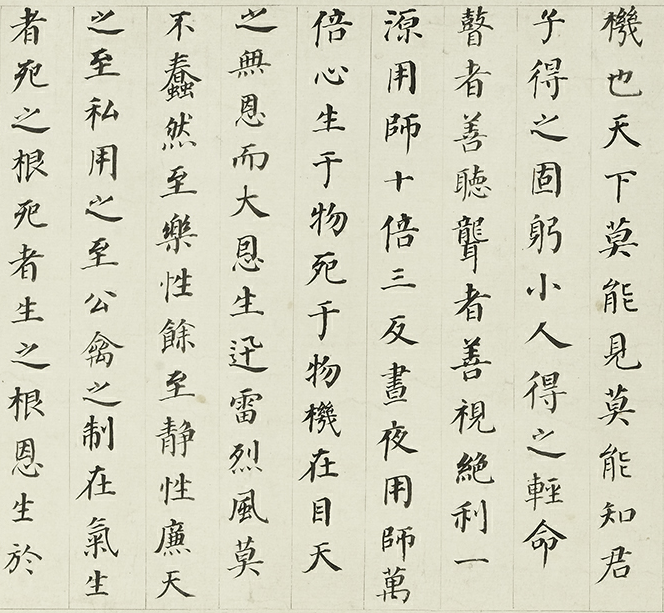 機也天下莫能見莫能知君
子得之固躬小人得之輕命
瞽者善聽聾者善視絕利一
源用師十倍三反晝夜用師萬
倍心生于物死于物機在目天
之無恩而大恩生迅雷烈風莫
不蠢然至樂性餘至静性廉天
之至私用之至公禽之制在氣生
者死之根死者生之根恩生於